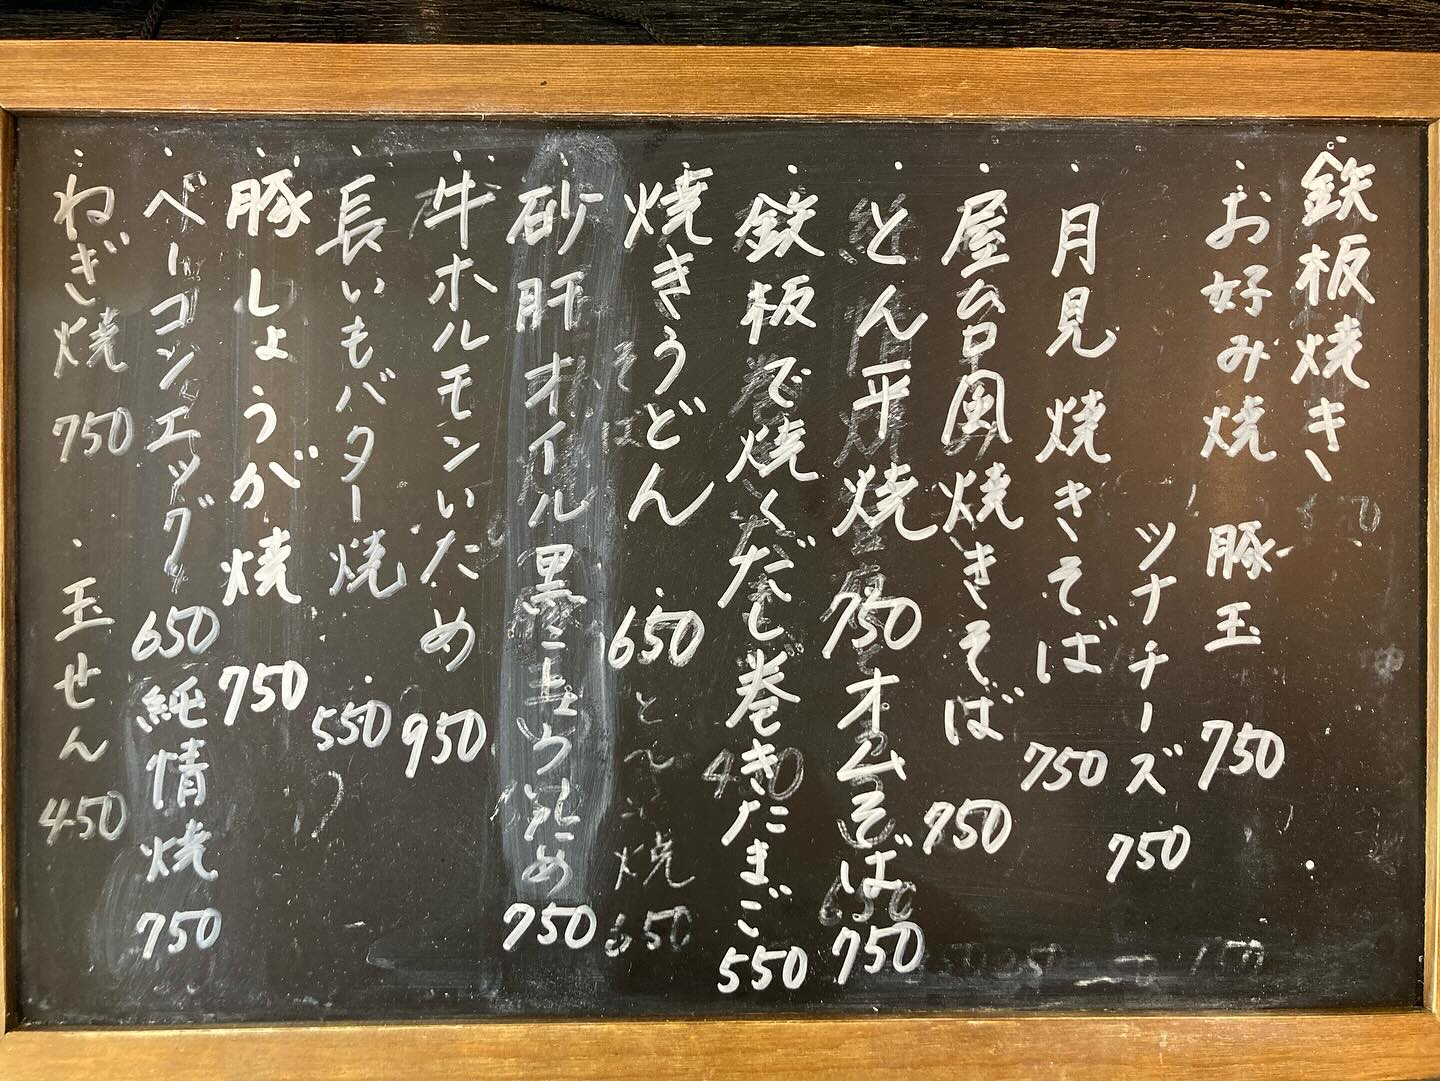 ・鉄板焼き
・お好み焼 豚玉 750
ツナチーズ 750
・月見焼きそば 750
・屋台風焼きそば 750
・とん平焼 750 オムそば 750
・鉄板で焼くだし巻きたまご 550
・焼きうどん 650
・砂肝オイル黒こしょう炒め 750
・牛ホルモンいため 950
・長いもバター焼 550
・豚しょうが焼 750
・ベーコンエッグ 650 純情焼 750
・ねぎ焼 750 ・玉せん 450